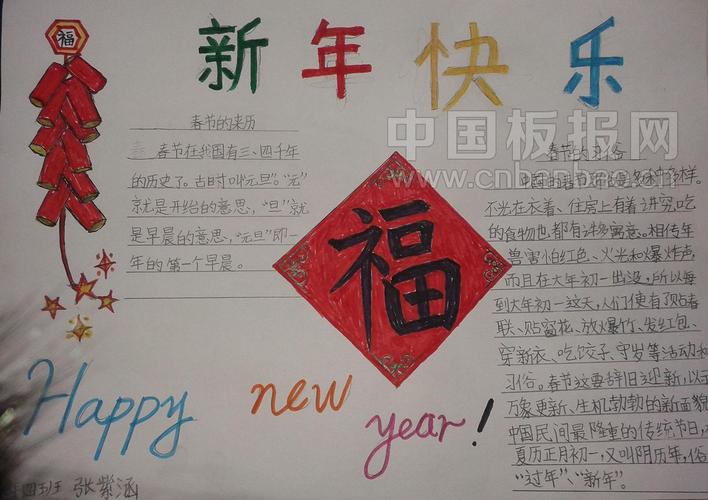 新年快乐
福
中国板报网
春节的来历
春节在我国有三、四千年
的历史了。古时叫"元旦"。"元"
就是开始的意思，"旦"就
是早晨的意思，"元旦"即一
年的第一个早晨。
福
春节的习俗
中国的春节习俗多种多样。
不光在衣着、住房上有着讲究，吃
的食物也都有讲寓意。相传年
兽害怕红色、火光和爆炸声，
而且在大年初一出没，所以每
到大年初一这天，人们便有了贴春
联、贴窗花、放爆竹、发红包、
穿新衣、吃饺子、守岁等活动和
习俗。春节这要辞旧迎新，以示
万象更新、生机勃勃的新面貌
中国民间最隆重的传统节日，
夏历正月初一，又叫阴历年，俗
"过年"、"新年"。
Happy new year!
四班 张紫涵